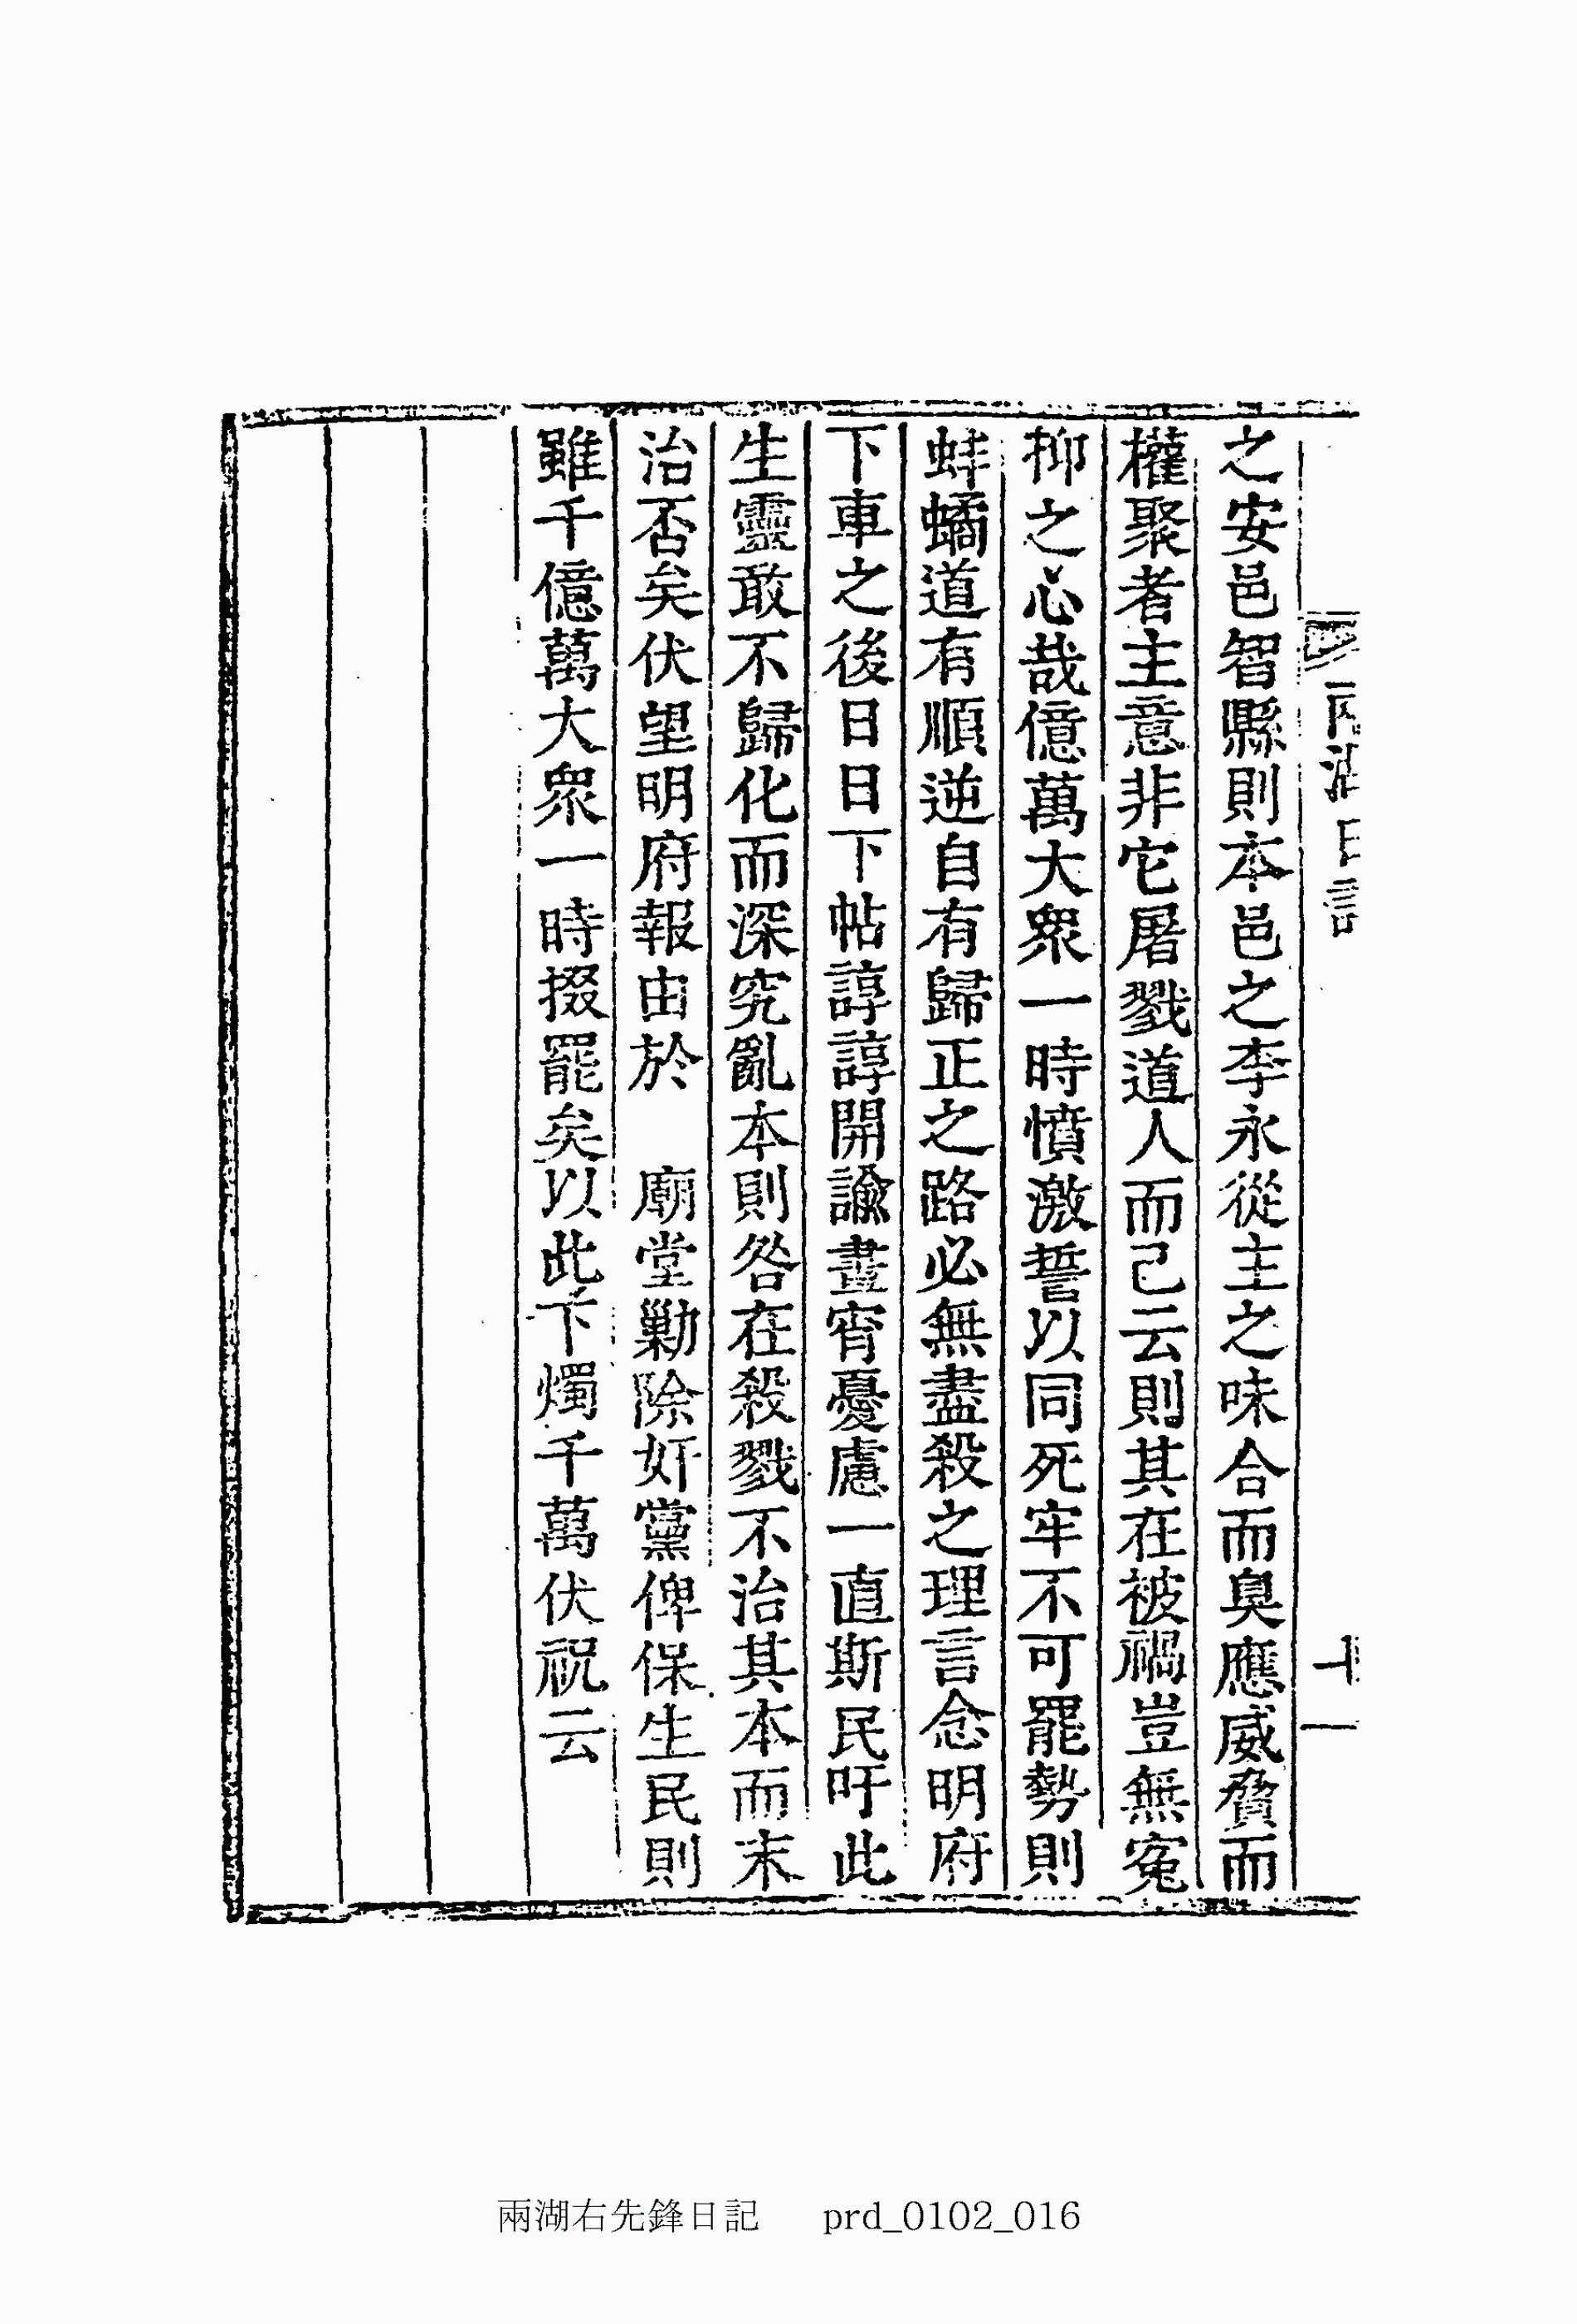 兩湖日記 十一
之安邑智縣則本邑之李永從主之味合而臭應威脅而
權聚者主意非它屠戮道人而已云則其在被禍豈無寃
抑之心哉億萬大衆一時憤激誓以同死牢不可罷勢則
蚌蟠道有順逆自有歸正之路必無盡殺之理言念明府
下車之後日日下帖諄諄開諭晝宵憂慮一直斯民吁此
生靈敢不歸化而深究亂本則咎在殺戮不治其本而末
治否矣伏望明府報由於 廟堂勦除奸黨俾保生民則
雖千億萬大衆一時掇罷矣以此下燭千萬伏祝云
兩湖右先鋒日記 prd_0102_016